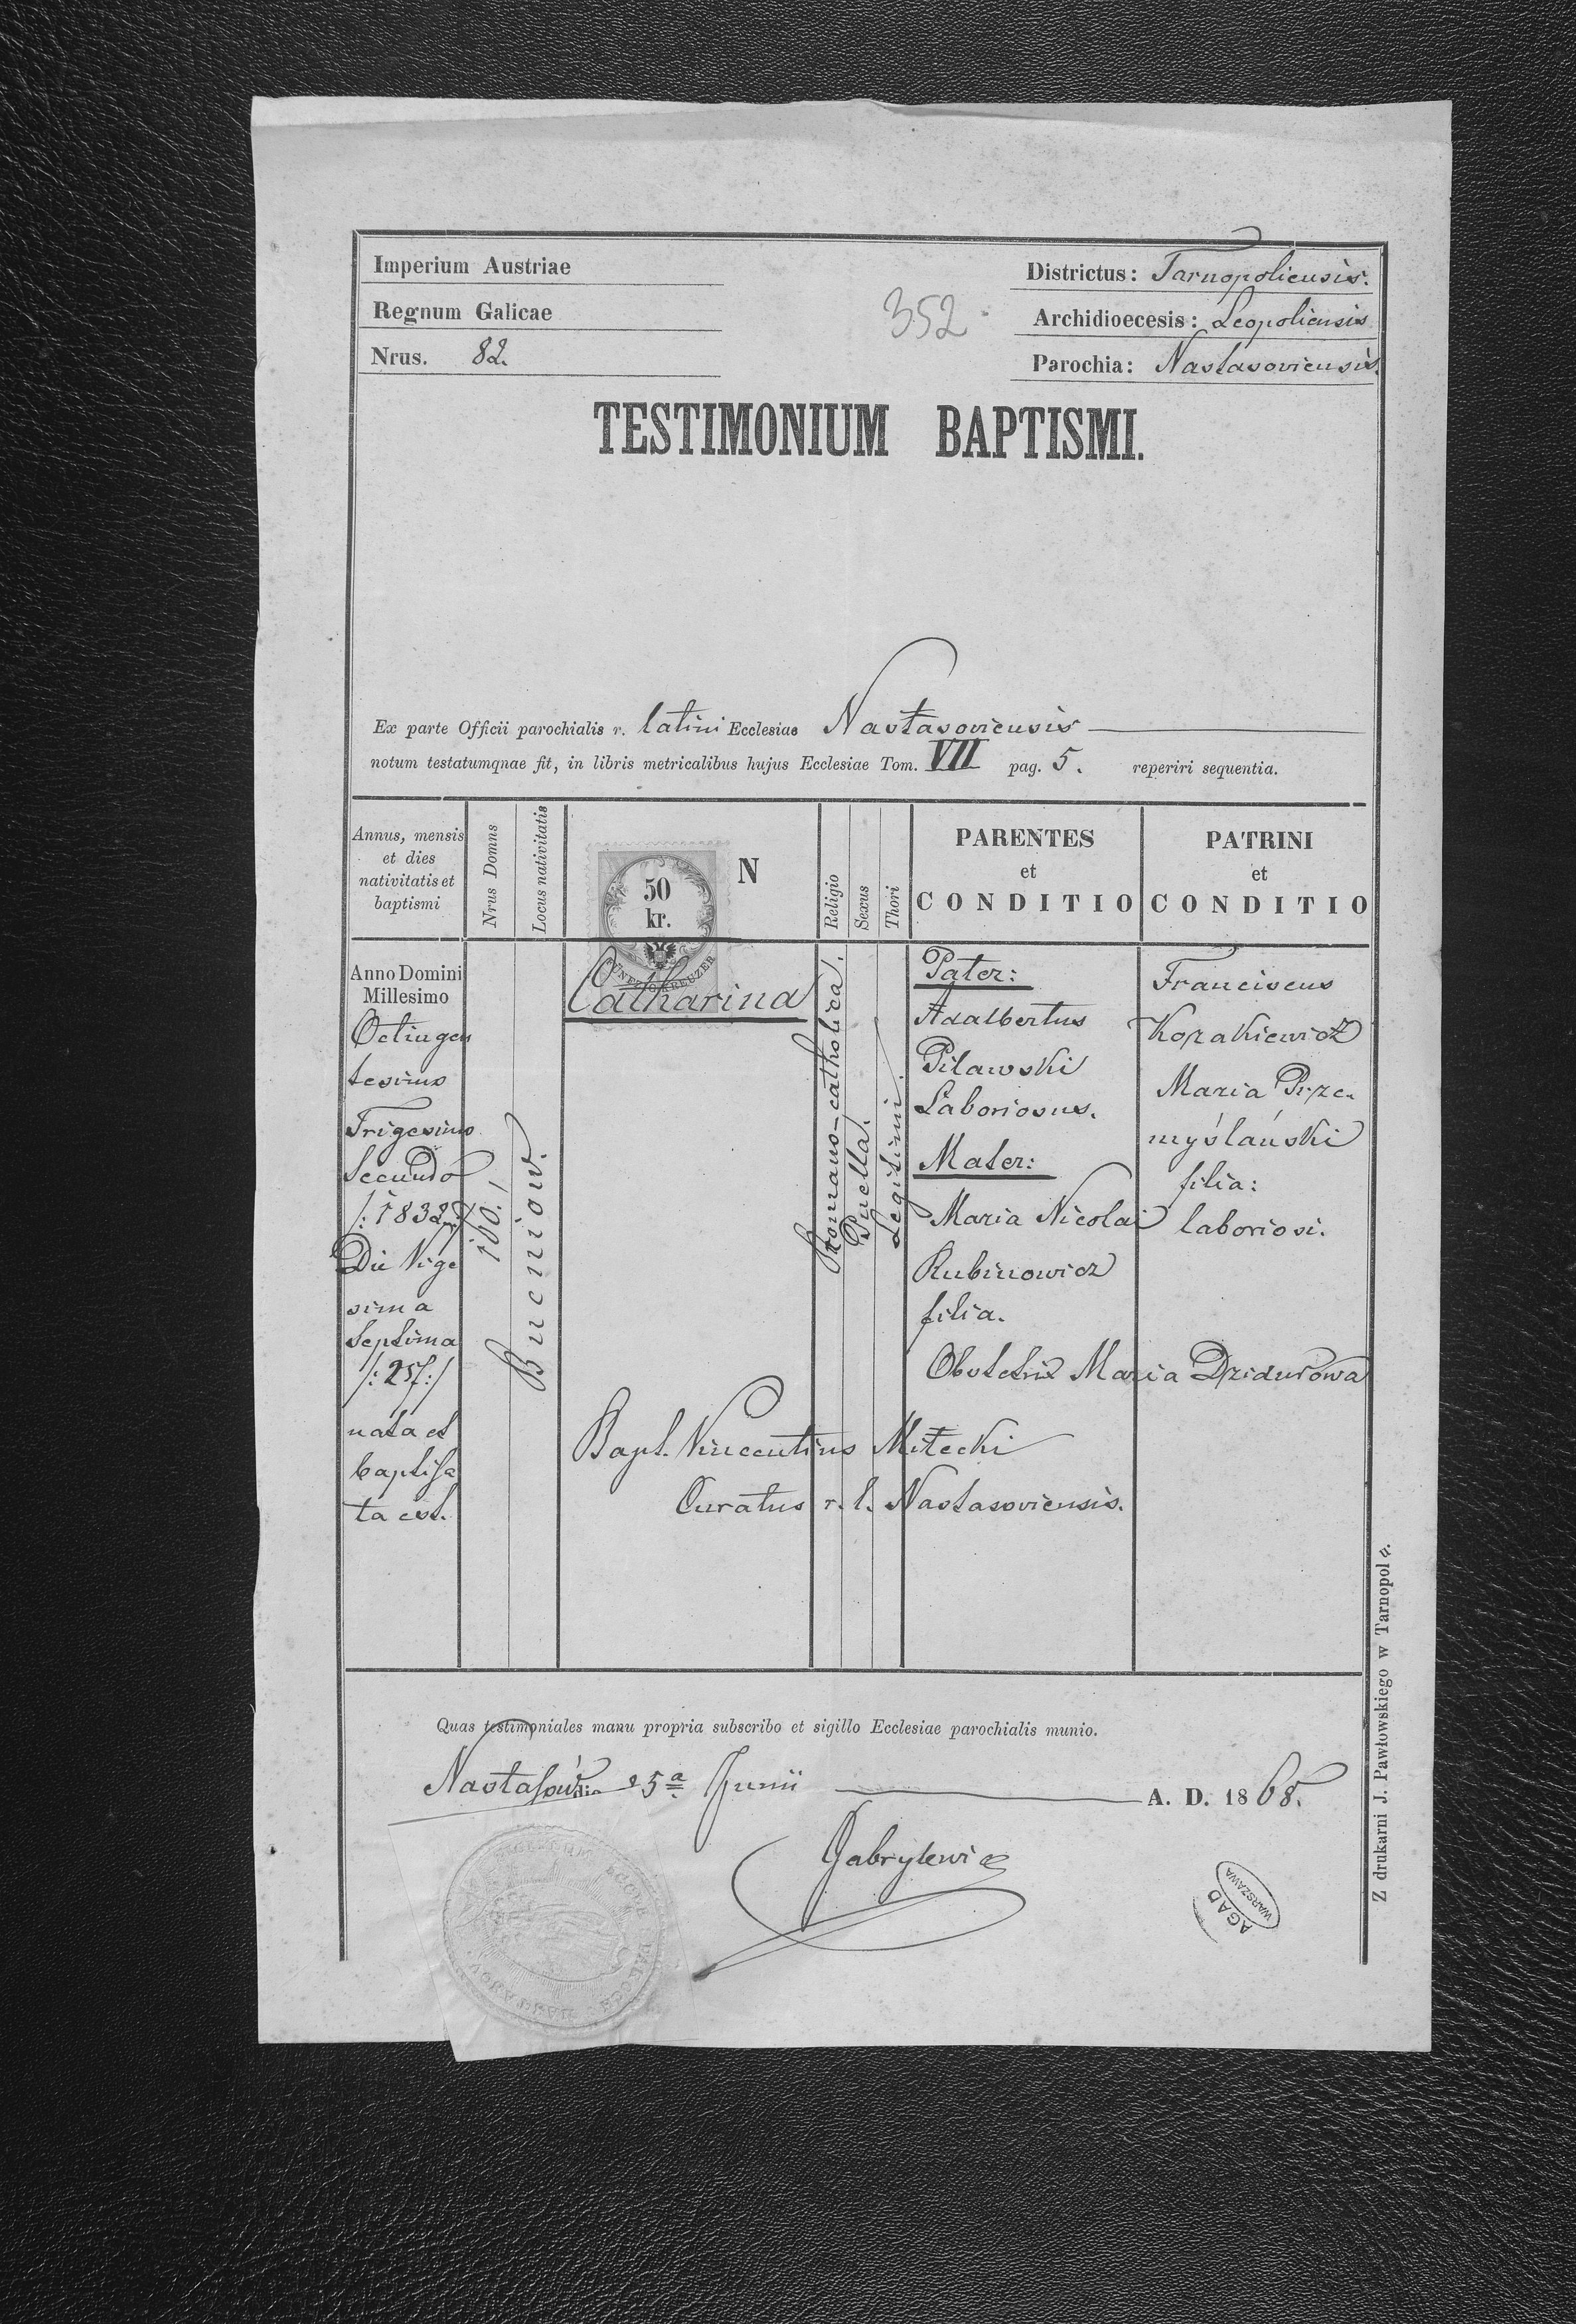 Imperium Austriae
Regnum Galicae
Nrus. 82.
352
Districtus: Tarnopoliensis.
Archidioecesis: Leopoliensis
Parochia: Nastasoviensis.
TESTIMONIUM BAPTISMI.
Ex parte Officii parochialis r. latini Ecclesiae Nastasoviensis
notum testatumqnae fit, in libris metricalibus hujus Ecclesiae Tom. VII pag. 5. reperiri sequentia.
Annus, mensis
et dies
nativitatis et
baptismi
Nrus Domns
Locus nativitatis
50
kr.
N
Religio
Sexus
Thori
PARENTES
et
CONDITIO
PATRINI
et
CONDITIO
Anno Domini
Millesimo
Octingen
tesimo
Trigesimo
Secundo
/:1832:/
Die Vige
sima
Septima
/:27:/
nata et
baptisa
ta est.
160.
Bucniow.
Catharina
Romano-catholica.
Puella.
Legitimi.
Pater:
Adalbertus
Pilawski
Laboriosus.
Mater:
Maria Nicolai
Rubinowicz
filia.
Franciscus
Kozakiewicz
Maria Prze-
myślański
filia:
laboriosi.
Obstetrix Maria Dzidurowa
Bapt. Vincentius Mitecki
Curatus r. l. Nastasoviensis.
Quas testimoniales manu propria subscribo et sigillo Ecclesiae parochialis munio.
Nastasów die 25ª Junii A. D. 1868.
Gabrylewicz
AGAD
WARSZAWA
Z drukarni J. Pawłowskiego w Tarnopolu.